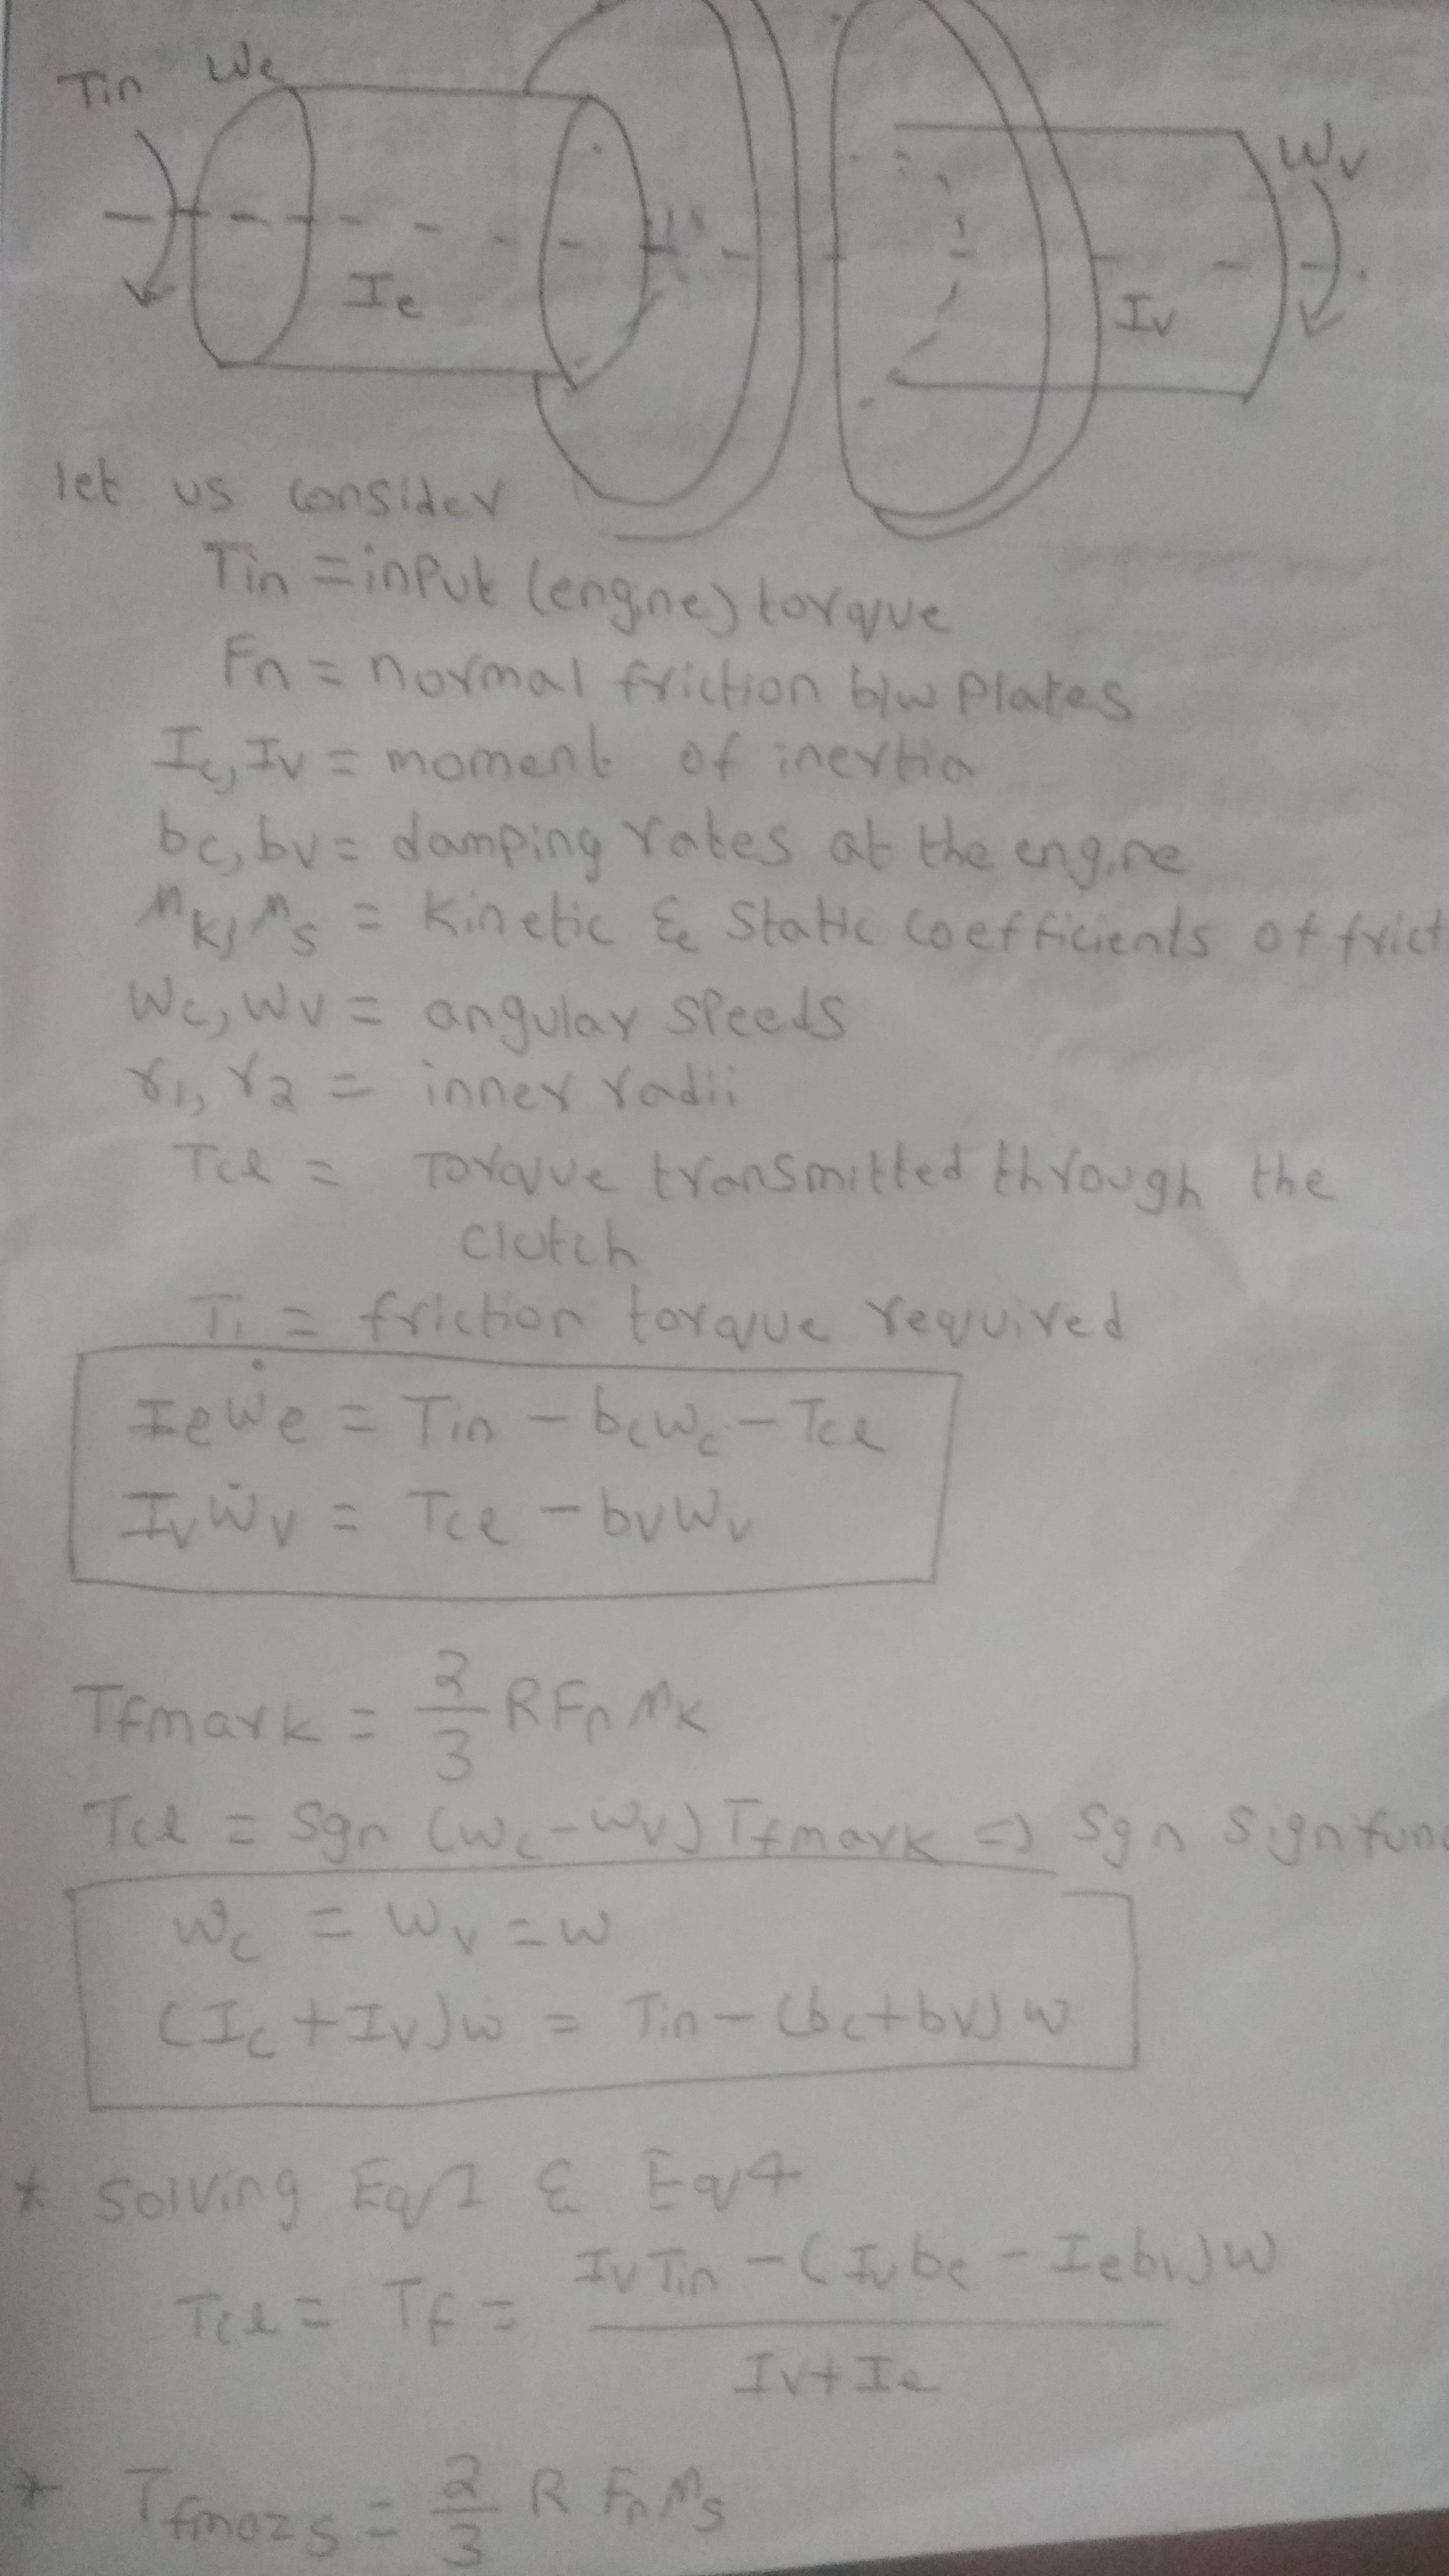 Tin We
Wv
Ie
Iv
let us consider
Tin = input (engine) torque
Fn = normal friction b/w Plates
Ic, Iv = moment of inertia
bc, bv = damping rates at the engine
μk, μs = Kinetic & Static coefficients of frict
Wc, Wv = angular speeds
r1, r2 = inner radii
Tcl = Torque transmitted through the
clutch
T1 = friction torque required
Ieẇe = Tin - bcwc - Tcl
Ivẇv = Tcl - bvwv
Tfmaxk = 2/3 RFn μk
Tcl = Sgn (wc-wv) Tfmaxk => Sgn Sign func
wc = wv = w
(Ic + Iv)ẇ = Tin - (bc+bv) w
* Solving Eq1 & Eq4
Tcl = Tf = IvTin - (Ivbe - Iebv)w / Iv+Ie
* Tfmaxs = 2/3 R Fn μs